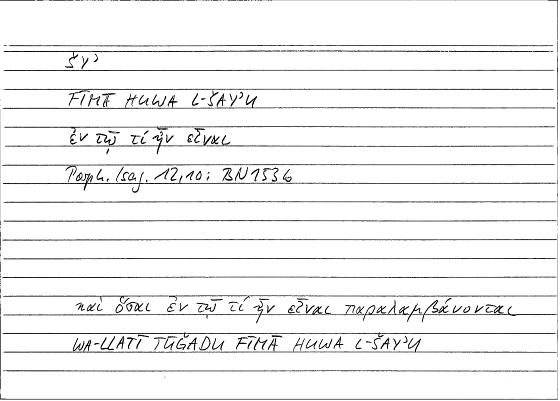 šyʾ
FĪMĀ HUWA L-ŠAYʾU
ἐν τῷ τί ἦν εἶναι
Porph. Isag. 12,10; BN 153b
καὶ ὅσαι ἐν τῷ τί ἦν εἶναι παραλαμβάνονται
WA-LLATĪ TŪǦADU FĪMĀ HUWA L-ŠAYʾU